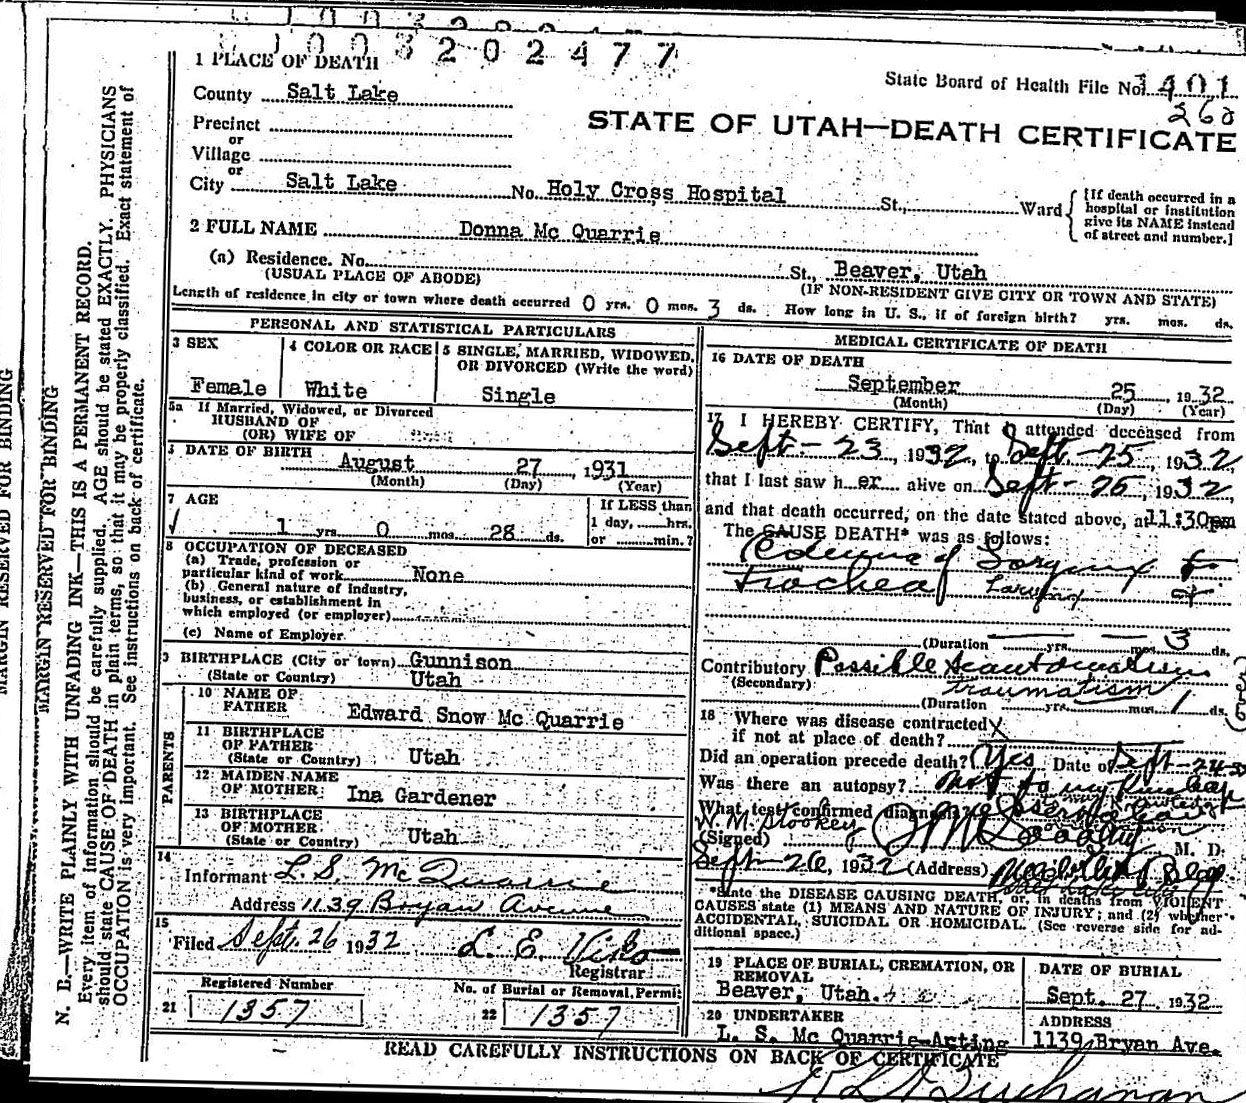 1003202477
1 PLACE OF DEATH
State Board of Health File No.
260
County Salt Lake
STATE OF UTAH—DEATH CERTIFICATE
Precinct
or
Village
or
City Salt Lake No. Holy Cross Hospital St., Ward
[If death occurred in a hospital or institution give its NAME instead of street and number.]
2 FULL NAME Donna Mc Quarrie
(a) Residence. No. St., Beaver, Utah
(USUAL PLACE OF ABODE) (IF NON-RESIDENT GIVE CITY OR TOWN AND STATE)
Length of residence in city or town where death occurred 0 yrs. 0 mos. 3 ds. How long in U. S., if of foreign birth? yrs. mos. ds.
PERSONAL AND STATISTICAL PARTICULARS
3 SEX Female
4 COLOR OR RACE White
5 SINGLE, MARRIED, WIDOWED, OR DIVORCED (Write the word) Single
5a If Married, Widowed, or Divorced
HUSBAND OF
(OR) WIFE OF
DATE OF BIRTH August 27, 1931
(Month) (Day) (Year)
7 AGE 1 yrs. 0 mos. 28 ds.
If LESS than
1 day, hrs.
or min.?
8 OCCUPATION OF DECEASED
(a) Trade, profession or
particular kind of work None
(b) General nature of industry,
business, or establishment in
which employed (or employer)
(c) Name of Employer
9 BIRTHPLACE (City or town) Gunnison
(State or Country) Utah
PARENTS
10 NAME OF FATHER Edward Snow Mc Quarrie
11 BIRTHPLACE OF FATHER (State or Country) Utah
12 MAIDEN NAME OF MOTHER Ina Gardener
13 BIRTHPLACE OF MOTHER (State or Country) Utah
14
Informant L. S. McQuarrie
Address 1139 Bryan Avenue
15
Filed Sept. 26 1932 L. E.
Registrar
Registered Number
21 1357
No. of Burial or Removal Permit
22 1357
MEDICAL CERTIFICATE OF DEATH
16 DATE OF DEATH
September 25, 1932
(Month) (Day) (Year)
17 I HEREBY CERTIFY, That I attended deceased from
Sept- 23, 1932, to Sept.-25, 1932,
that I last saw her alive on Sept- 25, 1932,
and that death occurred, on the date stated above, at 11:30pm
The CAUSE DEATH* was as follows:
Edema of Larynx &
Trachea Larynx +
(Duration yrs. mos. 3 ds.
Contributory Possible
(Secondary) traumatism
(Duration yrs. mos. 1 ds.
18 Where was disease contracted
if not at place of death?
Did an operation precede death? Yes Date of Sept-24-32
Was there an autopsy? not to my knowledge
What test confirmed diagnosis?
W. M.
(Signed) M. D.
Sept- 26, 1932 (Address)
*State the DISEASE CAUSING DEATH, or, in deaths from VIOLENT
CAUSES state (1) MEANS AND NATURE OF INJURY; and (2) whether
ACCIDENTAL, SUICIDAL OR HOMICIDAL. (See reverse side for ad-
ditional space.)
19 PLACE OF BURIAL, CREMATION, OR REMOVAL
Beaver, Utah.
DATE OF BURIAL
Sept. 27, 1932
20 UNDERTAKER
L. S. Mc Quarrie-Acting
ADDRESS
1139 Bryan Ave.
READ CAREFULLY INSTRUCTIONS ON BACK OF CERTIFICATE
Buchanan
MARGIN RESERVED FOR BINDING
MARGIN RESERVED FOR BINDING
N. B.—WRITE PLAINLY WITH UNFADING INK—THIS IS A PERMANENT RECORD.
Every item of information should be carefully supplied. AGE should be stated EXACTLY. PHYSICIANS
should state CAUSE OF DEATH in plain terms, so that it may be properly classified. Exact statement of
OCCUPATION is very important. See instructions on back of certificate.